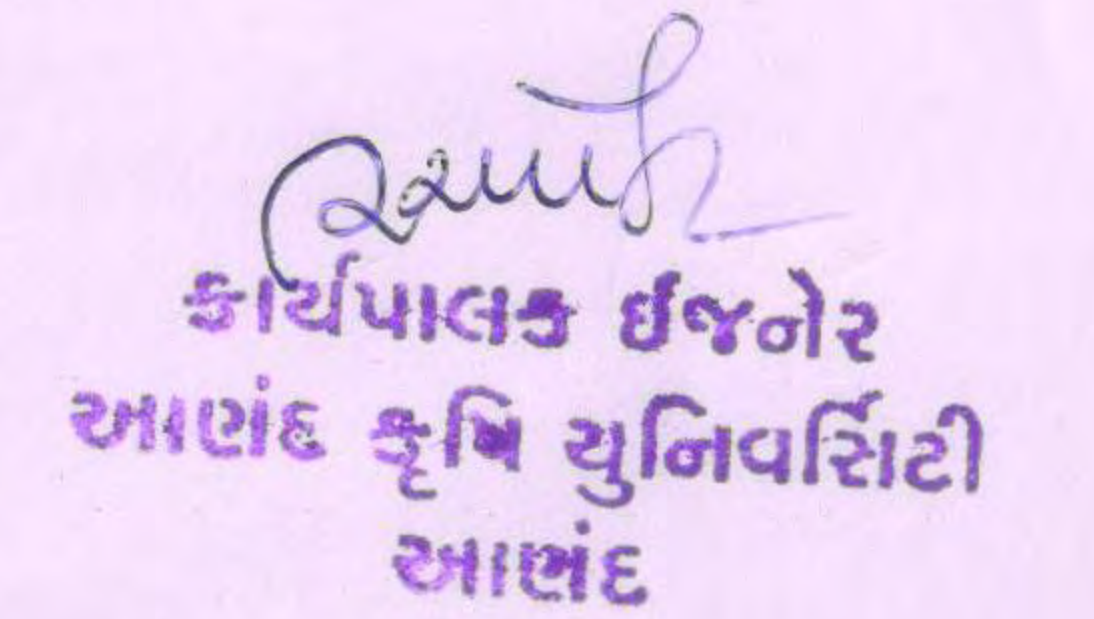 કાર્યપાલક ઈજનેર
આણંદ કૃષિ યુનિવર્સિટી
આણંદ